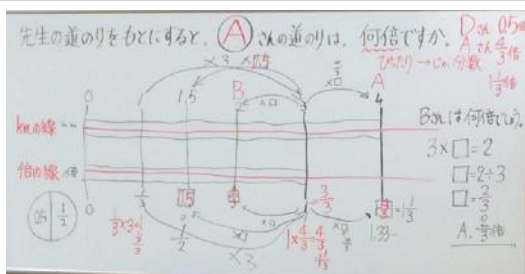 先生の道のりをもとにすると、Aさんの道のりは、何倍ですか。
Dさん 0.5倍
Aさん 4/3倍
ぴったり→
分数
1 1/3倍
×3
×0.5
×□
0
1
1.5
B
2
×□
3
A
4
kmの線
倍の線
倍
0
1/3
0.5
1/2
2/3
3/3
4/3
=1 1/3
1.33…
0.5
1/2
1/3×3=
3/3
×3
×□
1×4/3=4/3
1 1/3
Bさんは何倍でしょう。
3×□=2
□=2÷3
□=2/3
A. 2/3倍